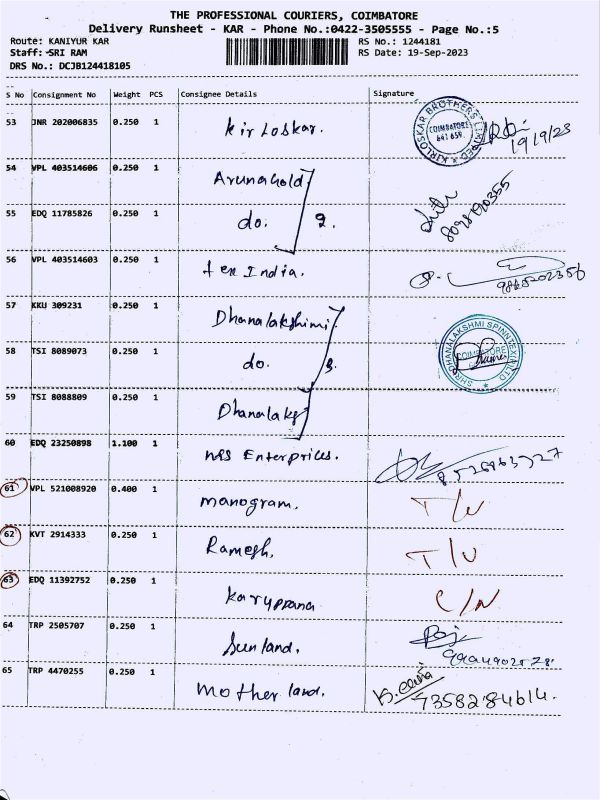 THE PROFESSIONAL COURIERS, COIMBATORE
Delivery Runsheet - KAR - Phone No.:0422-3505555 - Page No.:5
Route: KANIYUR KAR RS No.: 1244181
Staff: SRI RAM RS Date: 19-Sep-2023
DRS No.: DCJB124418105
S No Consignment No Weight PCS Consignee Details Signature
53 JNR 202006835 0.250 1 Kirloskar. KIRLOSKAR BROTHERS LIMITED COIMBATORE 641 659. 19/9/23
54 VPL 403514606 0.250 1
55 EDQ 11785826 0.250 1 do. 2.
56 VPL 403514603 0.250 1 tex India.
57 KKU 309231 0.250 1 Dhanalakshimi
58 TSI 8089073 0.250 1 do. 3. DHANALAKSHMI COIMBATORE
59 TSI 8088809 0.250 1 Dhanalaks
60 EDQ 23250898 1.100 1 Enterprices.
61 VPL 521008920 0.400 1 manogram.
62 KVT 2914333 0.250 1 Ramesh.
63 EDQ 11392752 0.250 1 C/N
64 TRP 2505707 0.250 1 Sunland.
65 TRP 4470255 0.250 1 Mother land. 7358284614.